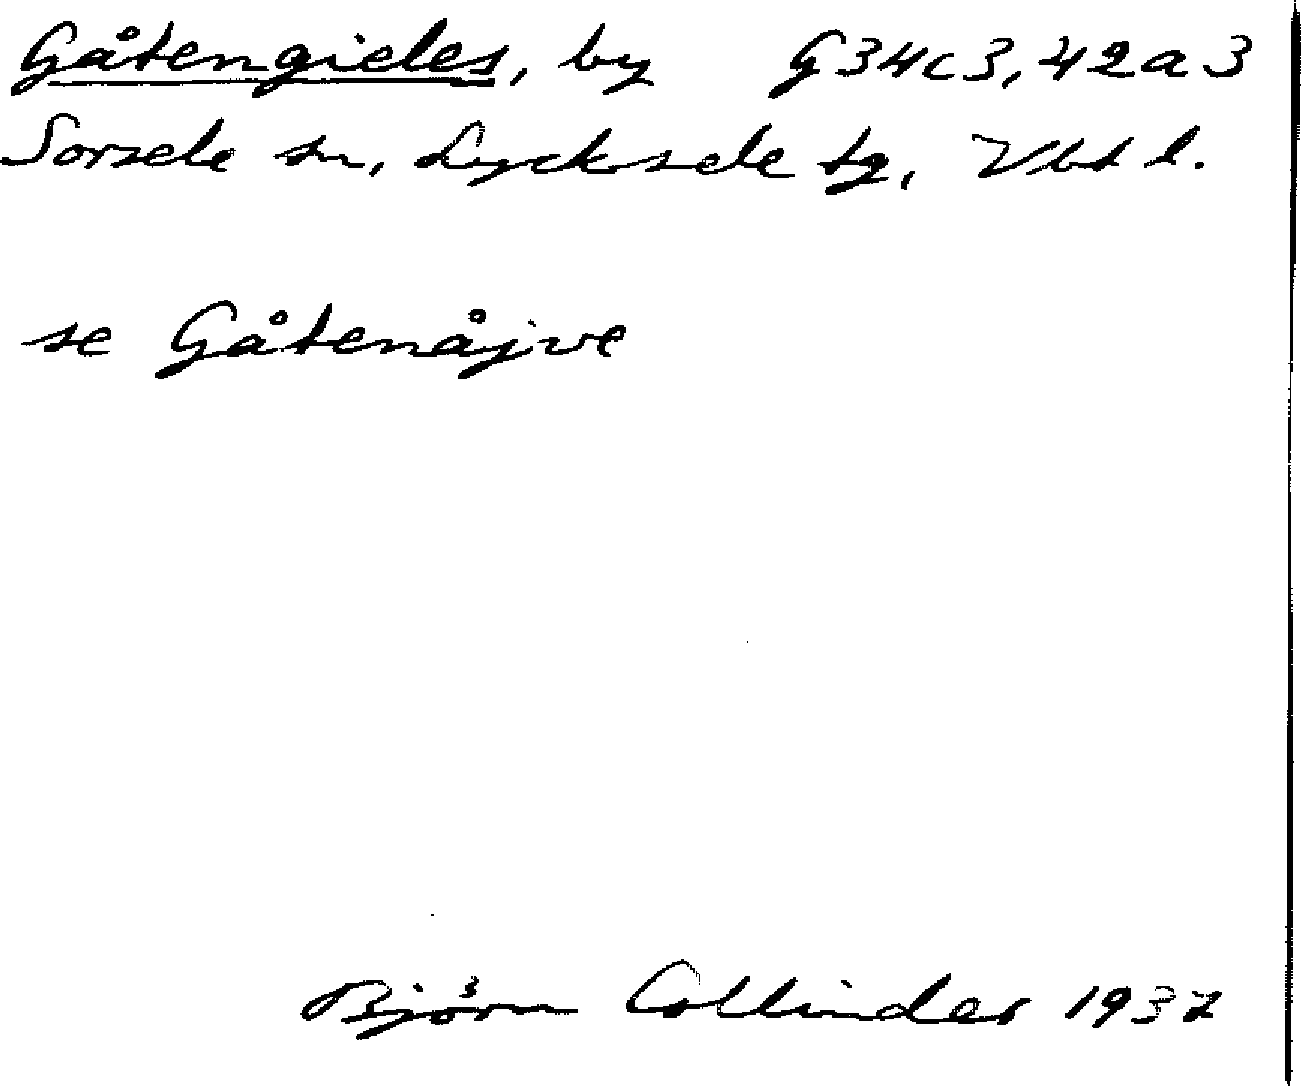 Gåtengieles, by G34c3, 42a3
Sorsele sn, Lycksele tg, Vbt l.
se Gåtenåjve
Björn Collinder 1937